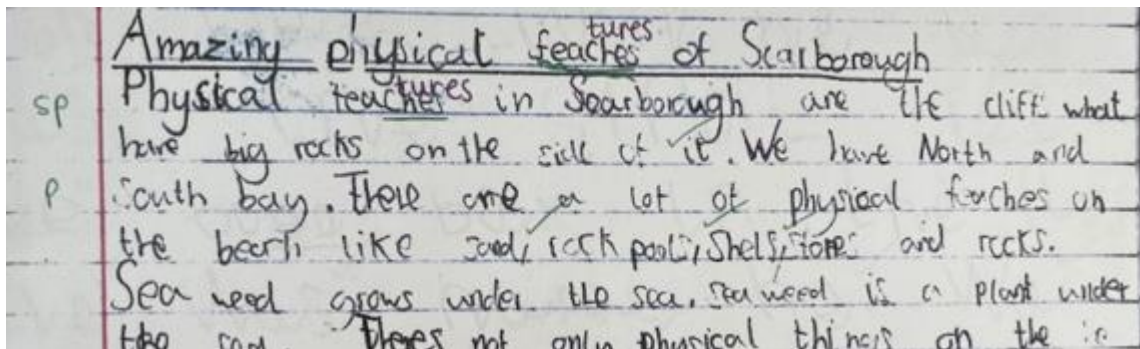 Amazing physical feaches tures of Scarborough
Physical feaches tures in Scarborough are the cliff what
sp
have big rocks on the side of it. We have North and
p
South bay. There are a lot of physical feaches on
the beach like sand, rock pools, shells, stones and rocks.
Sea weed grows under the sea. Sea weed is a plant under
the sea. Theres not only physical things on the